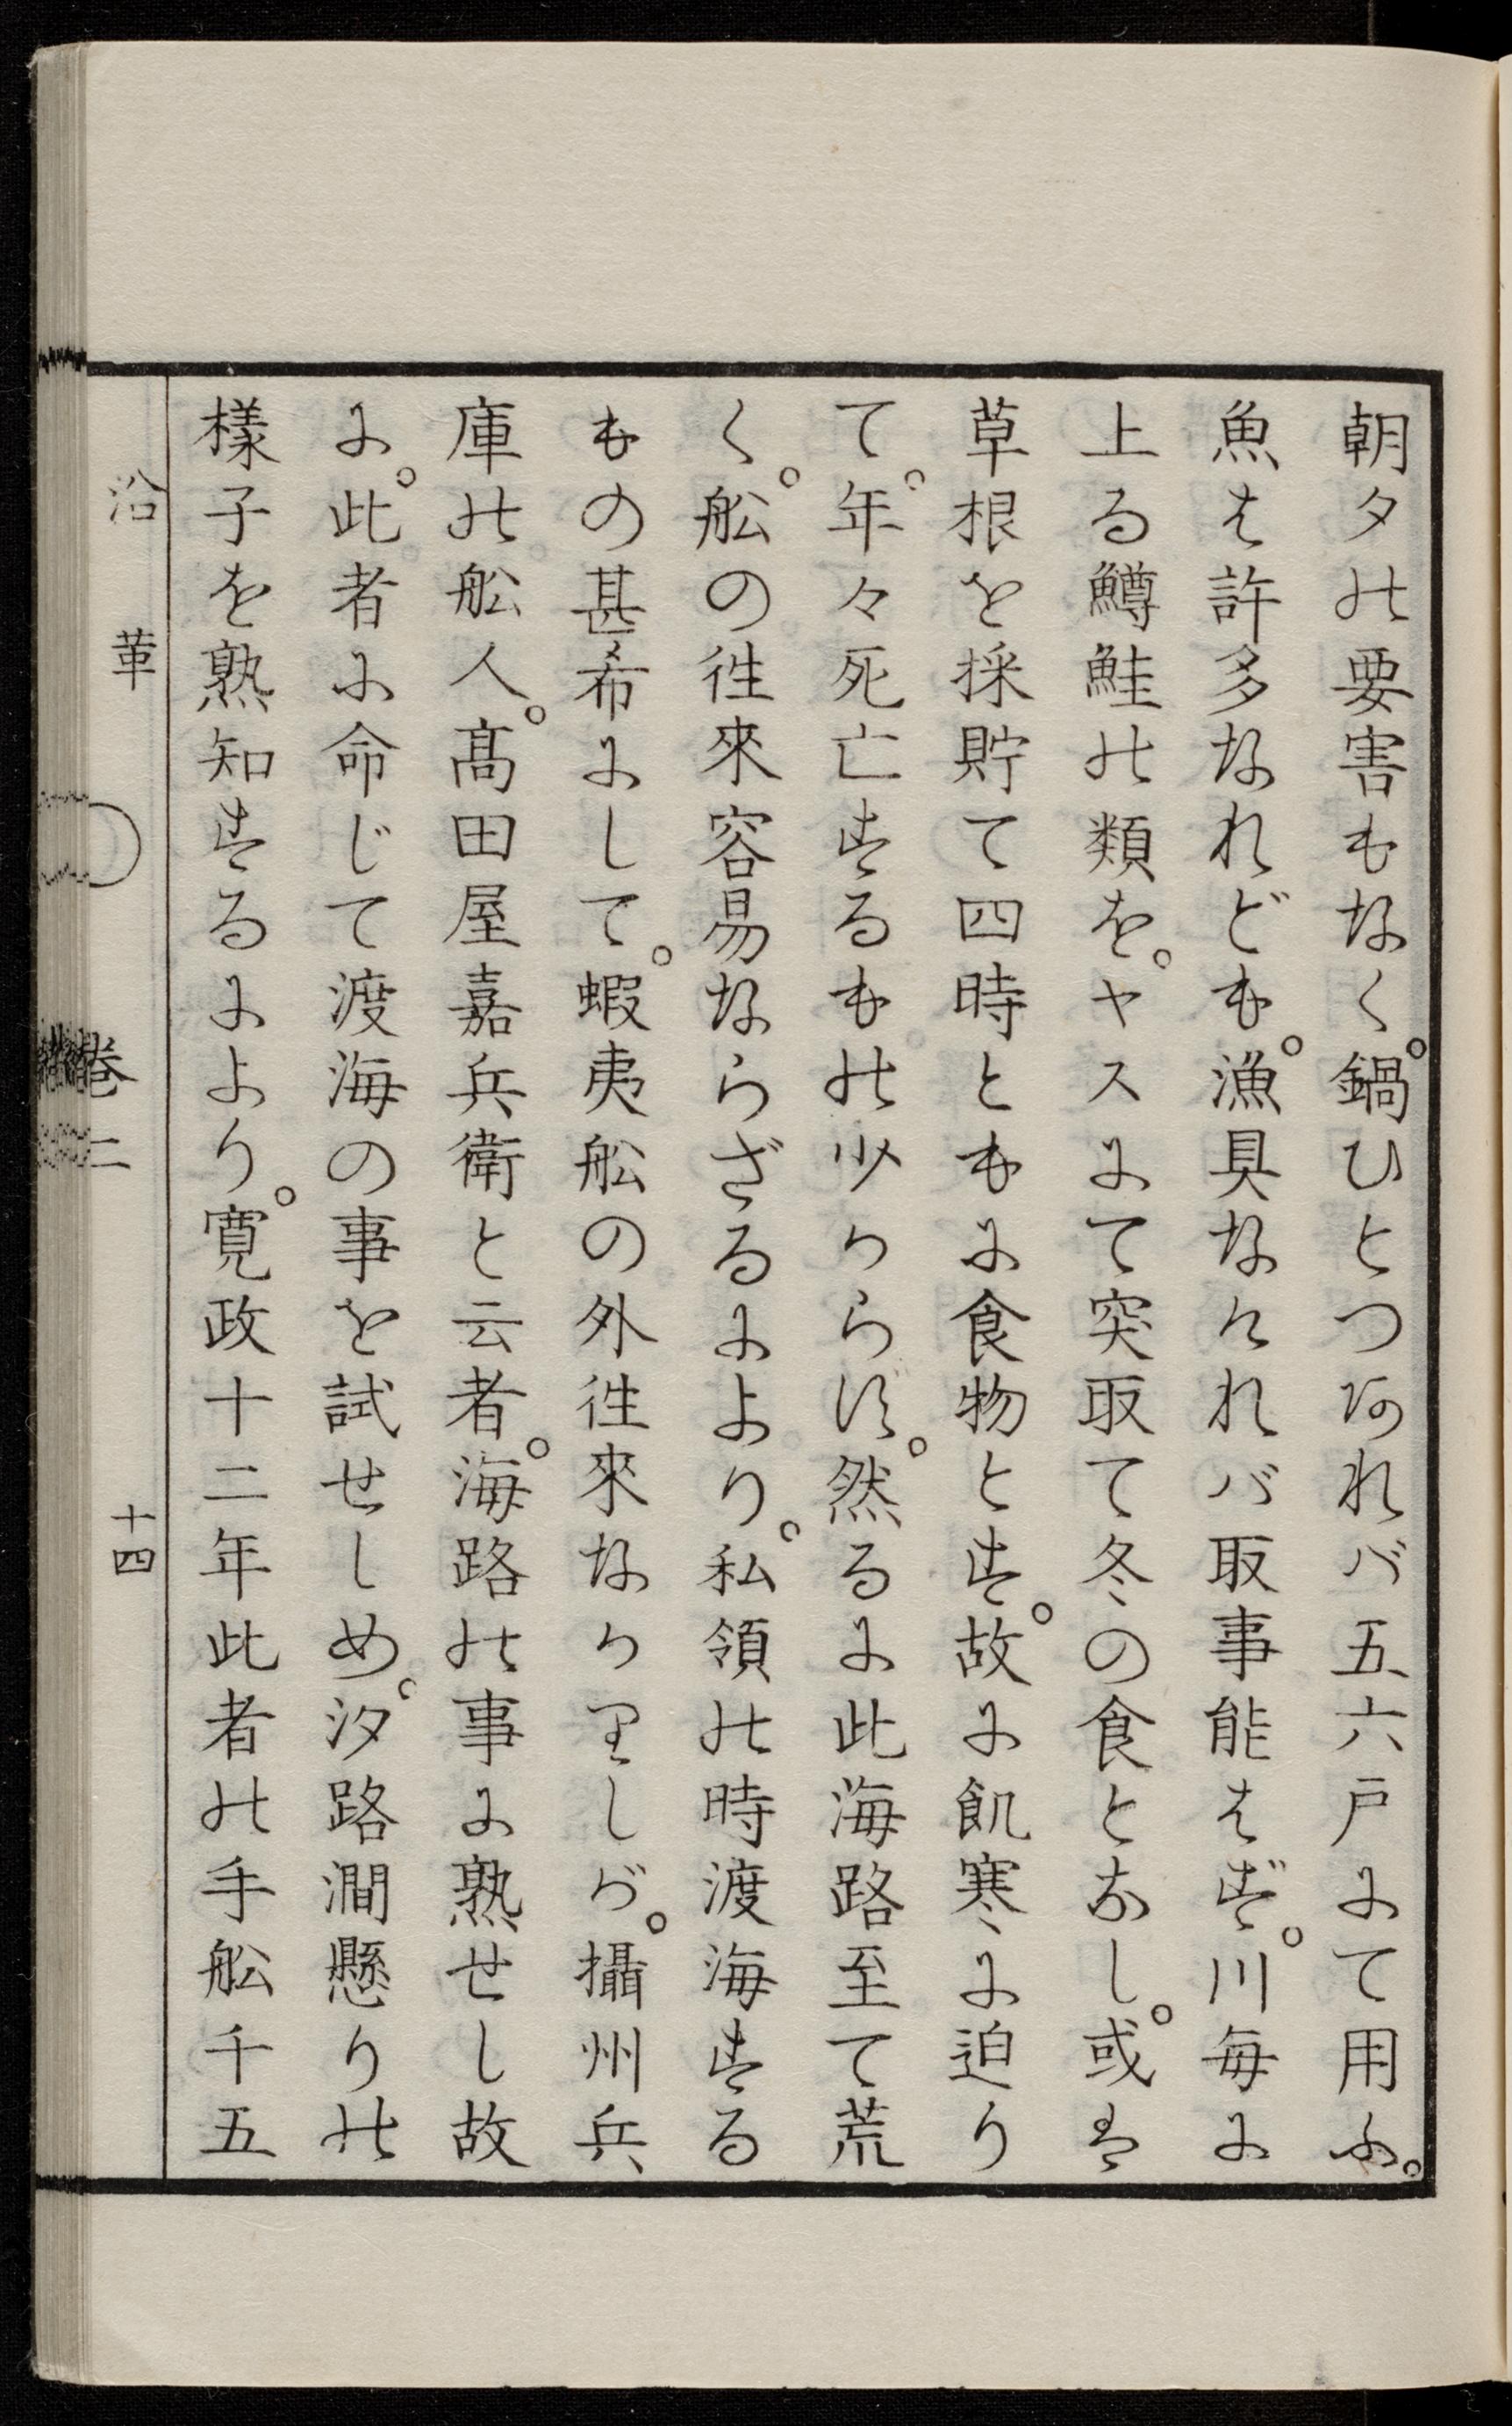 朝夕の要害もなく。鍋ひとつあれバ五六戸にて用ふ。
魚は許多なれども。漁具なけれバ取事能はず。川毎に
上る鱒鮭の類を。ヤスにて突取て冬の食となし。或は
草根を採貯て四時ともに食物とす。故に飢寒に迫り
て。年々死亡するもの少からず。然るに此海路至て荒
く。舩の往來容易ならざるにより。私領の時渡海する
もの甚希にして。蝦夷舩の外往來なかりしが。攝州兵
庫の舩人。髙田屋嘉兵衛と云者。海路の事に熟せし故
に。此者に命じて渡海の事を試せしめ。汐路澗懸りの
様子を熟知するにより。寛政十二年此者の手舩千五
沿革 巻二 十四